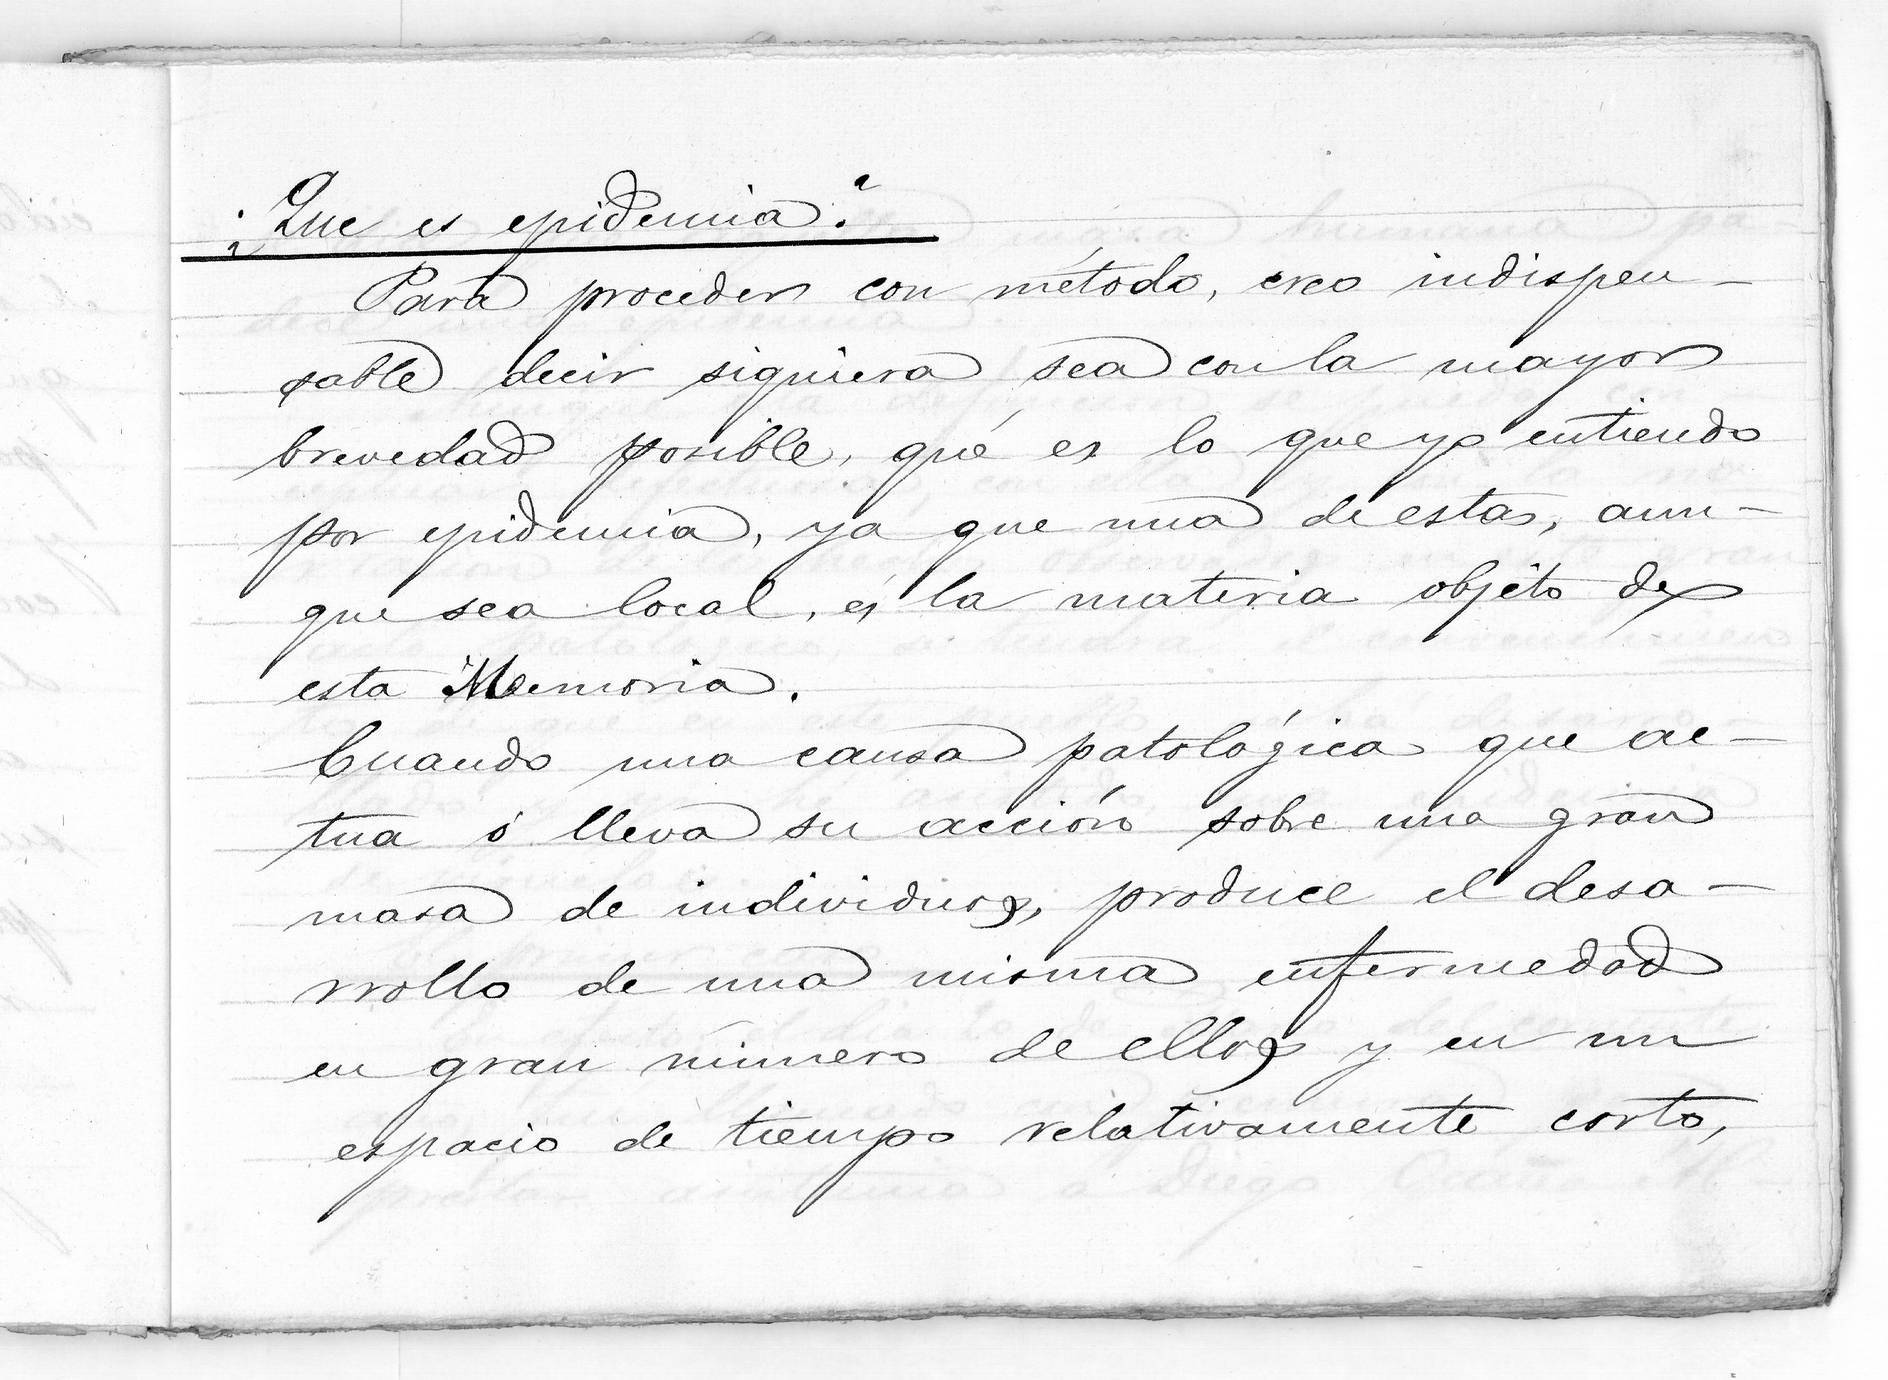 ¿Que es epidemia?
Para proceder con método, creo indispen-
sable decir siquiera sea con la mayor
brevedad posible, qué es lo que yo entiendo
por epidemia, ya que una de estas, aun-
que sea local, es la materia objeto de
esta Memoria.
Cuando una causa patológica que ac-
tua ó lleva su acción sobre una gran
masa de individuos, produce el desa-
rrollo de una misma enfermedad
en gran número de ellos y en un
espacio de tiempo relativamente corto,